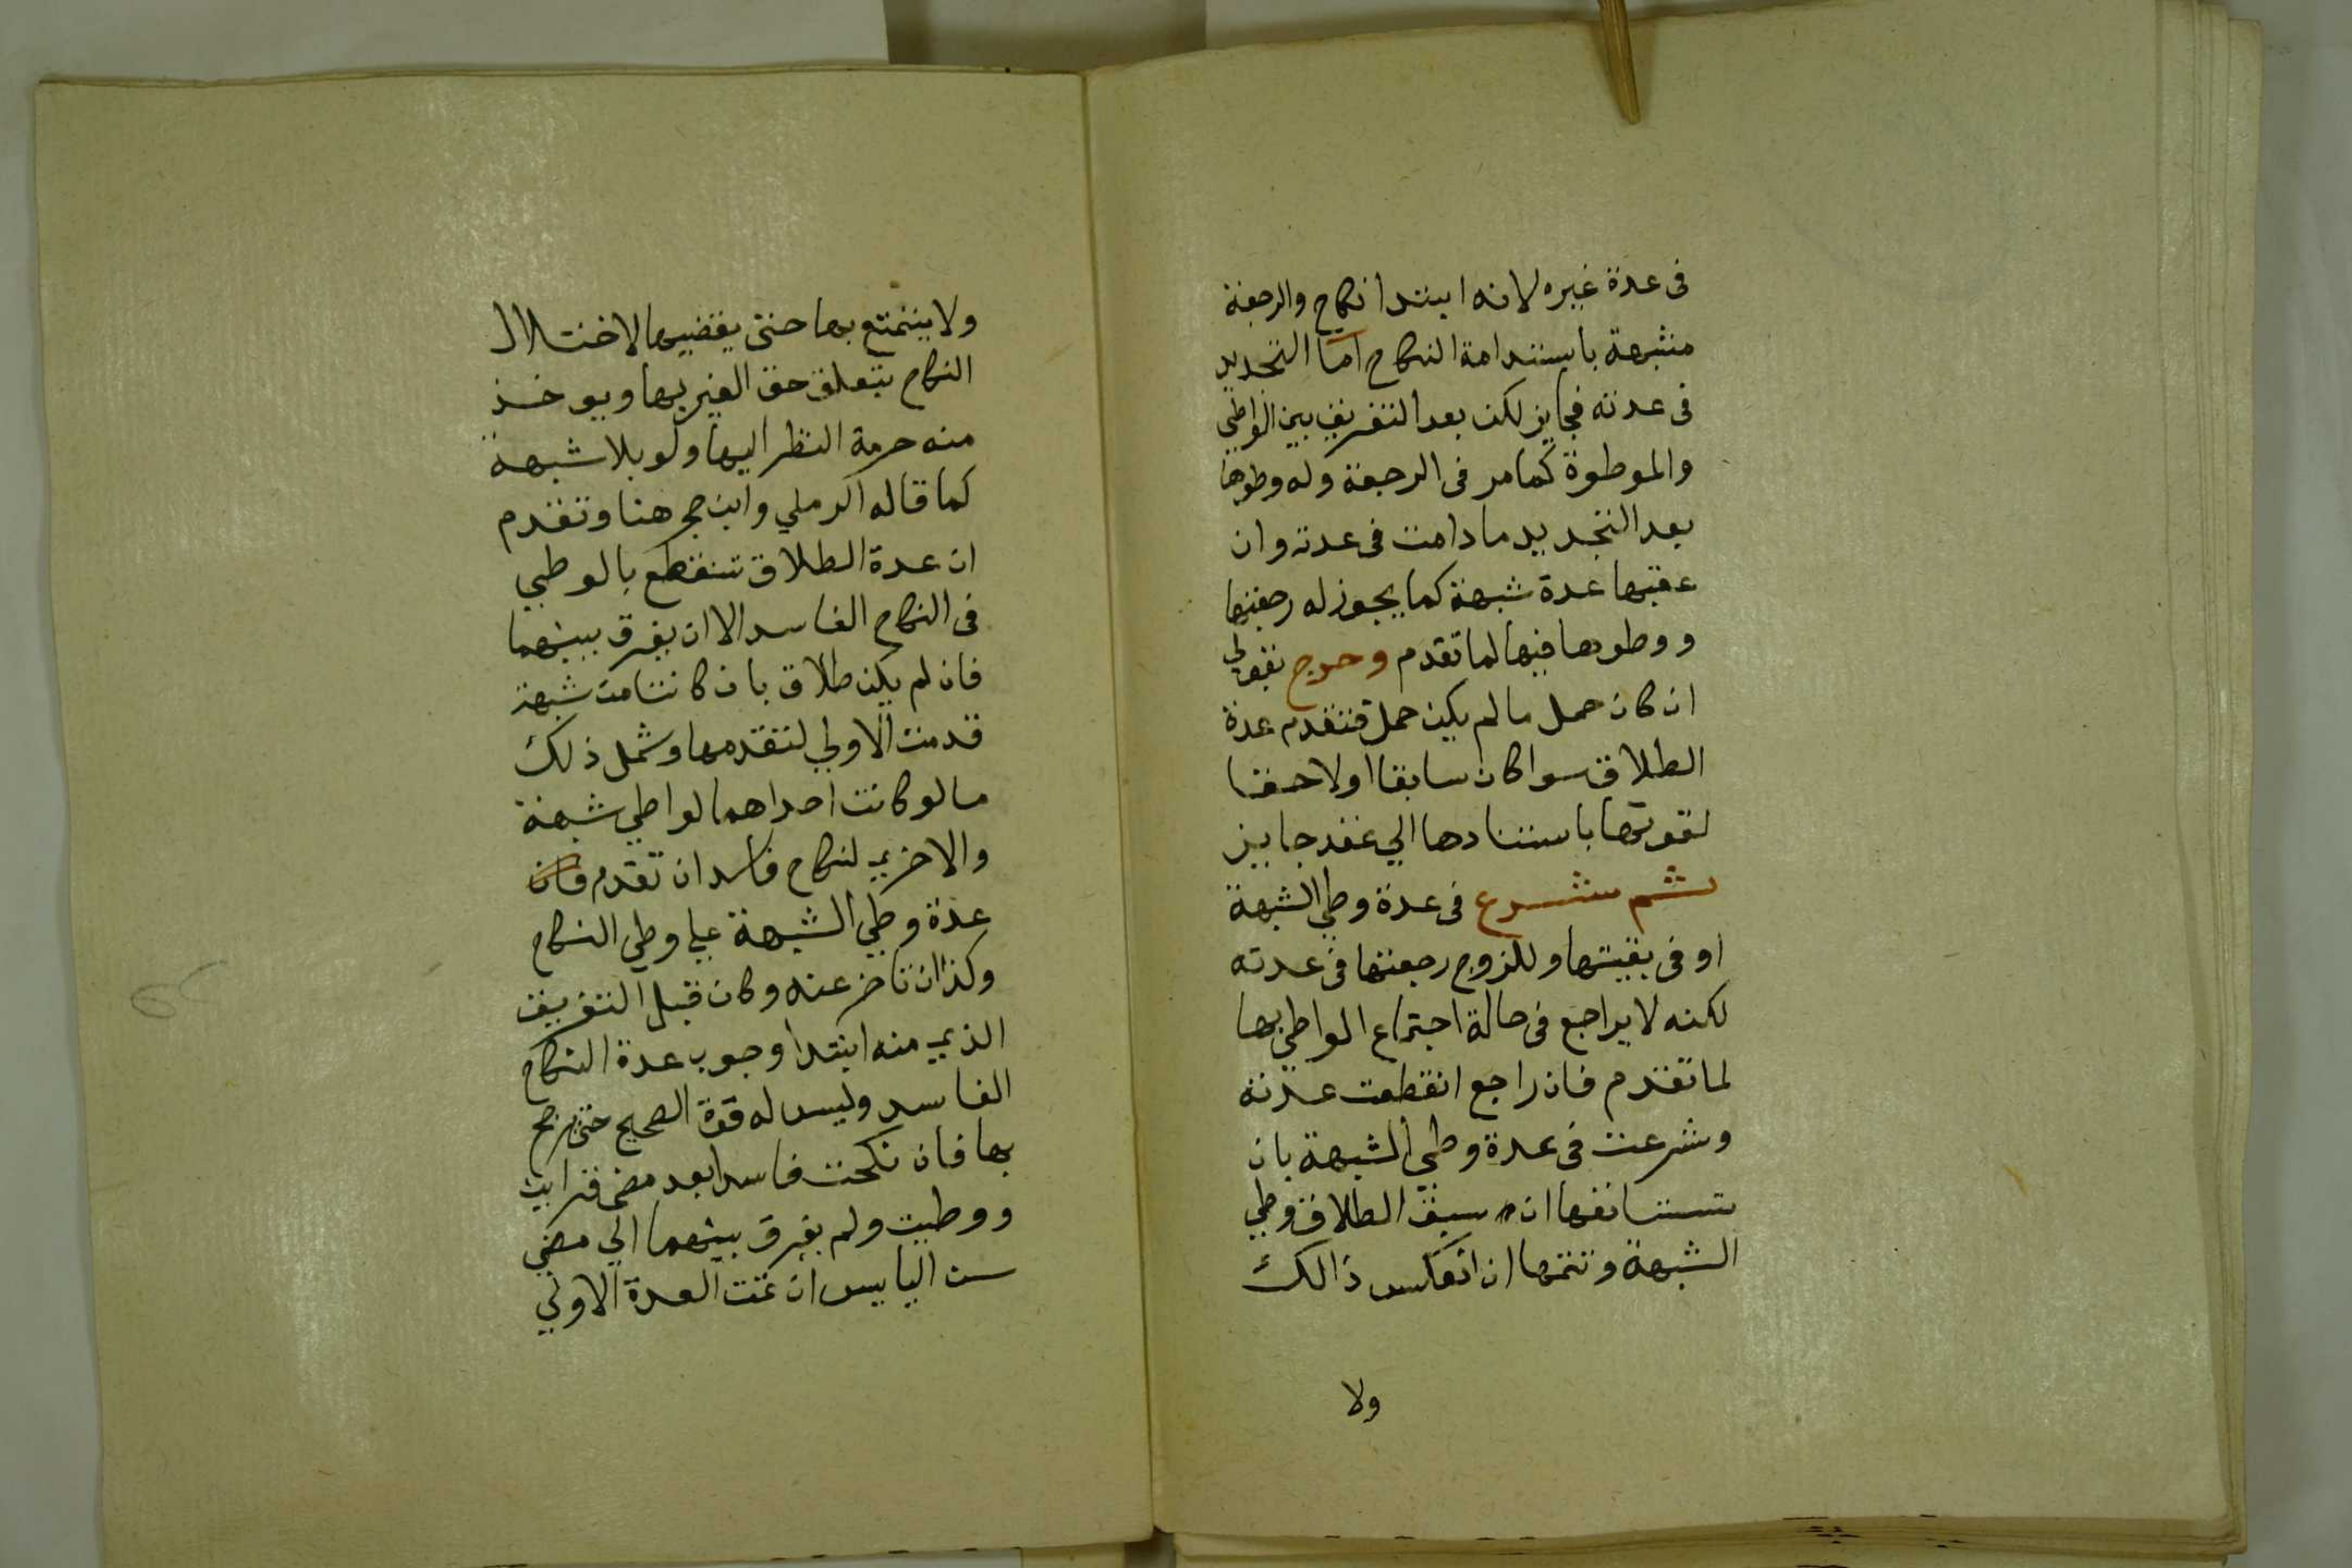 فى عدة غيره لانه ابتدا نكاح والرجعة
مشبهة باستدامة النكاح اما التجديد
فى عدته فجايز لكن بعد التفريق بين الواطي
والموطوة كما مر فى الرجعة وله وطوها
بعد التجديد ما دامت فى عدته وان
عقبها عدة شبهة كما يجوز له رجعتها
ووطوها فيها لما تقدم وخرج بقولي
ان كان حمل ما لم يكن حمل فتقدم عدة
الطلاق سوا كان سابقا اولاحقا
لقوتها باستنادها الي عقد جايز
ثم تشرع فى عدة وطي الشبهة
او فى بقيتها وللزوج رجعتها فى عدته
لكنه لا يراجع فى حالة اجتماع الواطي بها
لما تقدم فان راجع انقطعت عدته
وشرعت فى عدة وطي الشبهة بان
تستانفها ان سبق الطلاق وطي
الشبهة وتتمها ان انعكس ذالك
ولا
ولا يتمتع بها حتى يقضيها لاختلال
النكاح بتعلق حق الغير بها ويوخذ
منه حرمة النظر اليها ولو بلا شبهة
كما قاله الرملي وابن حج هنا وتقدم
ان عدة الطلاق تنقطع بالوطي
فى النكاح الفاسد الا ان يفرق بينهما
فان لم يكن طلاق بان كانتا من شبهة
قدمت الاولي لتقدمها وشمل ذلك
ما لو كانت احداهما لواطي شبهة
والاخري لنكاح فاسد ان تقدم فان
عدة وطي الشبهة علي وطي النكاح
وكذا ان تاخر عنه وكان قبل التفريق
الذي منه ابتدا وجوب عدة النكاح
الفاسد وليس له قوة الصحيح حتى يرجح
بها فان نكحت فاسدا بعد مضى قراين
ووطيت ولم يفرق بينهما الي مضي
سن الياس ان تمت العدة الاولي